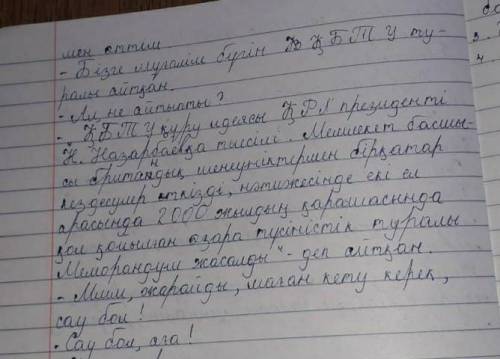 мен өттім
- Бізге мұғалім бүгін ҚБТУ ту-
ралы айтқан.
- Ал, не айтыпты?
- ҚБТУ құру идеясы ҚР президенті
Н. Назарбаевқа тиесілі. Мемлекет басшы-
сы британдық министрмен бірқатар
кездесулер өткізді, нәтижесінде екі ел
арасында 2000 жылдың қарашасында
қол қойылған өзара түсіністік туралы
Меморандум жасалды" - деп айтқан.
- Ммм, жарайды, маған кету керек,
сау бол!
- Сау бол, аға!